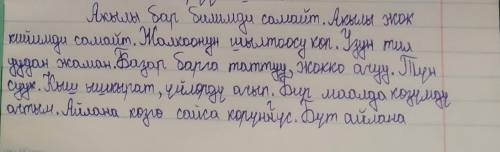 Акылы бар билимди самайт. Акылы жок
кийимди самайт. Жалкоонун шылтоосу көп. Узун тил
уудан жаман. Базар барга таттуу, жокко ачуу. Түн
суук. Кыш ышкырат, үйлөрдү ачып. Бир маалда көзүмдү
ачтым. Айлана көзгө сайса көрүнгүс. Бүт айлана